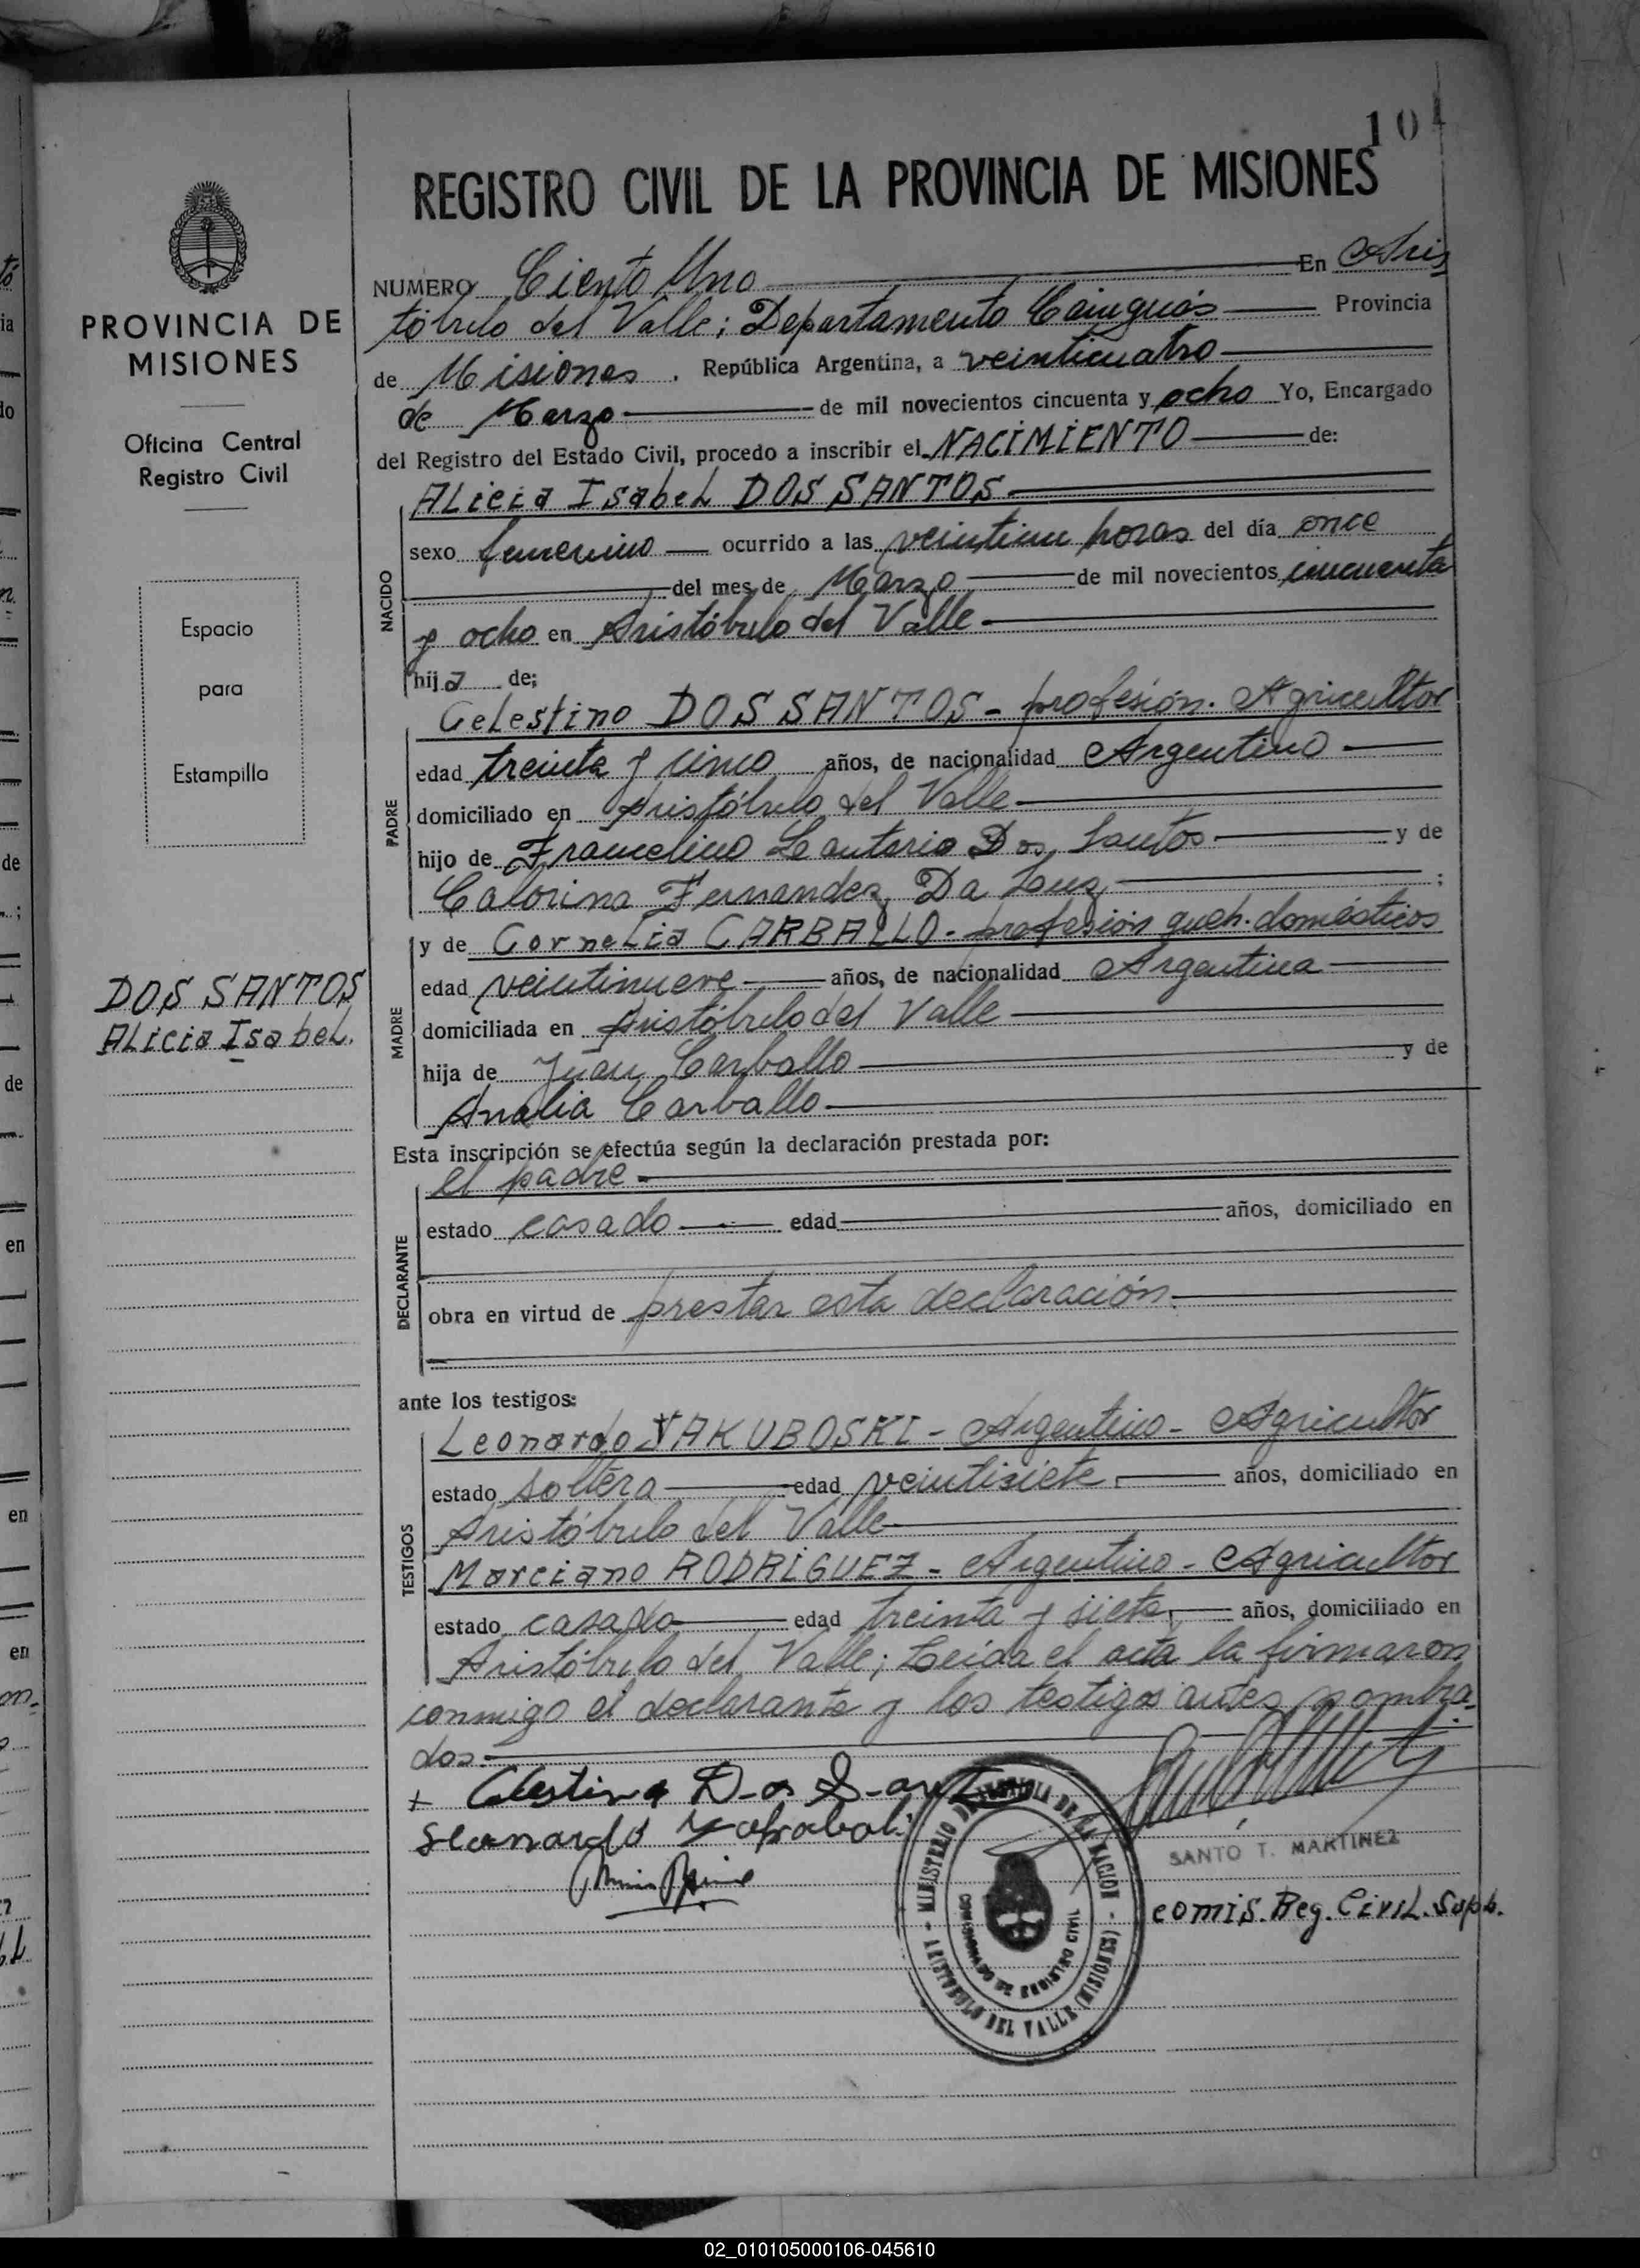 101
REGISTRO CIVIL DE LA PROVINCIA DE MISIONES
PROVINCIA DE
MISIONES
Oficina Central
Registro Civil
Espacio
para
Estampilla
DOS SANTOS
Alicia Isabel.
NUMERO Ciento Uno En Aris
tóbulo del Valle; Departamento Cainguás Provincia
de Misiones . República Argentina, a veinticuatro
de Marzo de mil novecientos cincuenta y ocho Yo, Encargado
del Registro del Estado Civil, procedo a inscribir el NACIMIENTO de:
NACIDO
Alicia Isabel DOS SANTOS
sexo femenino ocurrido a las veintiun horas del día once
del mes de Marzo de mil novecientos cincuenta
y ocho en Aristóbulo del Valle
hija de;
PADRE
Celestino DOS SANTOS - profesión. Agricultor
edad treinta y cinco años, de nacionalidad Argentino
domiciliado en Aristóbulo del Valle
hijo de Francelino Dos Santos y de
Fernandez Da ;
MADRE
y de Cornelia CARBALLO - profesión queh. domésticos
edad veintinueve años, de nacionalidad Argentina
domiciliada en Aristóbulo del Valle
hija de Juan Carballo y de
Analia Carballo
Esta inscripción se efectúa según la declaración prestada por:
DECLARANTE
el padre
estado casado edad años, domiciliado en
obra en virtud de prestar esta declaración.
ante los testigos:
TESTIGOS
Leonardo YAKUBOSKI - Argentino - Agricultor
estado soltero edad veintisiete años, domiciliado en
Aristóbulo del Valle
Marciano RODRIGUEZ - Argentino - Agricultor
estado casado edad treinta y siete años, domiciliado en
Aristóbulo del Valle; Leída el acta la firmaron
conmigo el declarante y los testigos antes nombra-
dos.
+ Celestino Dos Sant
Leonardo
MINISTERIO DE JUSTICIA DE LA NACION
COMISIONADO DE REGISTRO CIVIL
ARISTOBULO DEL VALLE (MISIONES)
SANTO T. MARTINEZ
comis. Reg. Civil. Supl.
02_010105000106-045610